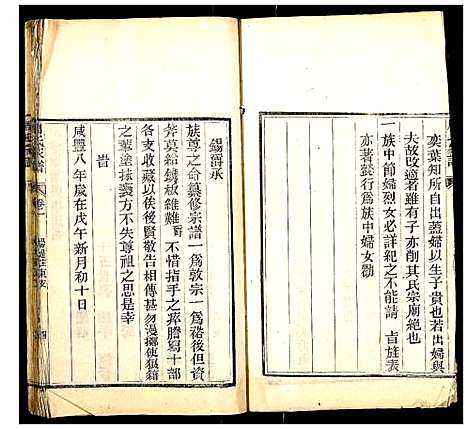 奕葉知所自出蓋婦以生子貴也若出婦與
夫故改適者雖有子亦削其氏宗廟絕也
一族中節婦烈女必詳紀之不能請　旨旌表
亦著懿行爲族中婦女勸
錫爵承
族尊之命纂修宗譜一爲敦宗一爲裕後但資
斧莫給鐫板維艱爵不惜指手之瘁謄寫十部
各支收藏以俟後賢敬告相傳甚勿漫擲使狼籍
之輩塗抹褻方不失尊祖之思是幸
旹
咸豐八年歲在戊午新月初十日
卷一